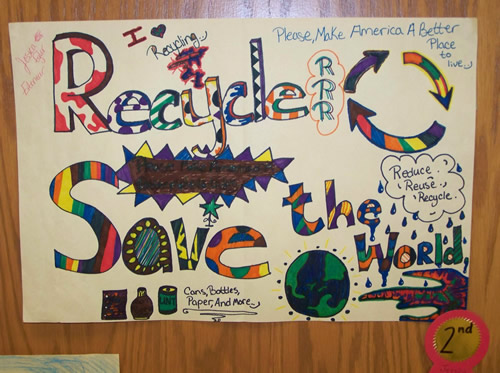 I ♥
Recycling
Please, Make America A Better
Place
to
live
Recycle
R
R
R
Save the
World,
Reduce.
Reuse.
Recycle.
Cans, Bottles,
Paper, And More
2nd